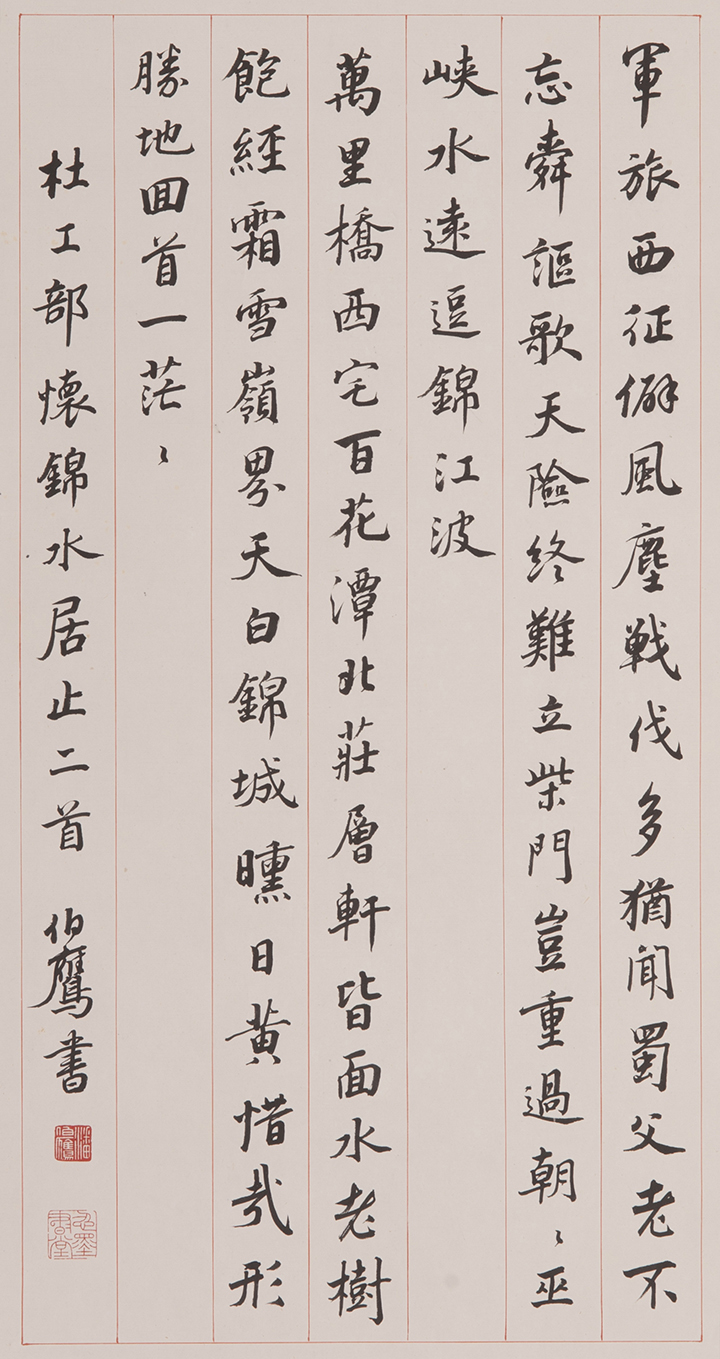 軍旅西征僻風塵戦伐多猶聞蜀父老不
忘舜謳歌天險終難立柴門豈重過朝〻巫
峽水遠逗錦江波
萬里橋西宅百花潭北莊層軒皆面水老樹
飽經霜雪嶺界天白錦城曛日黃惜哉形
勝地囬首一茫〻
杜工部懷錦水居止二首 伯鷹書
潘伯鷹